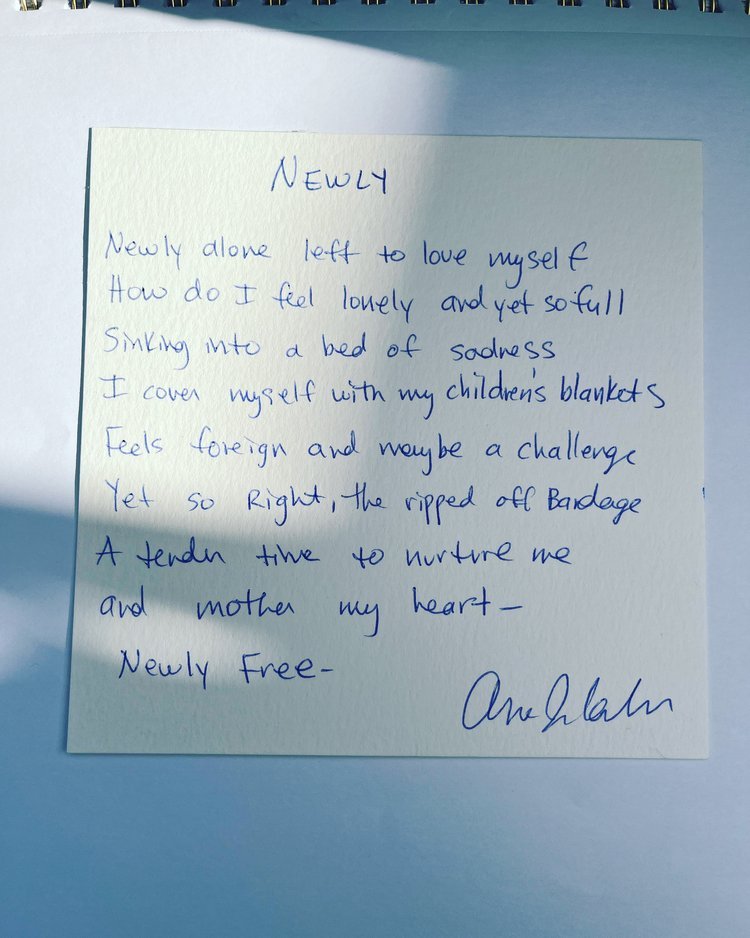 NEWLY
Newly alone left to love myself
How do I feel lonely and yet so full
Sinking into a bed of sadness
I cover myself with my children's blankets
Feels foreign and maybe a challenge
Yet so Right, the ripped off Bandage
A tender time to nurture me
and mother my heart –
Newly Free –